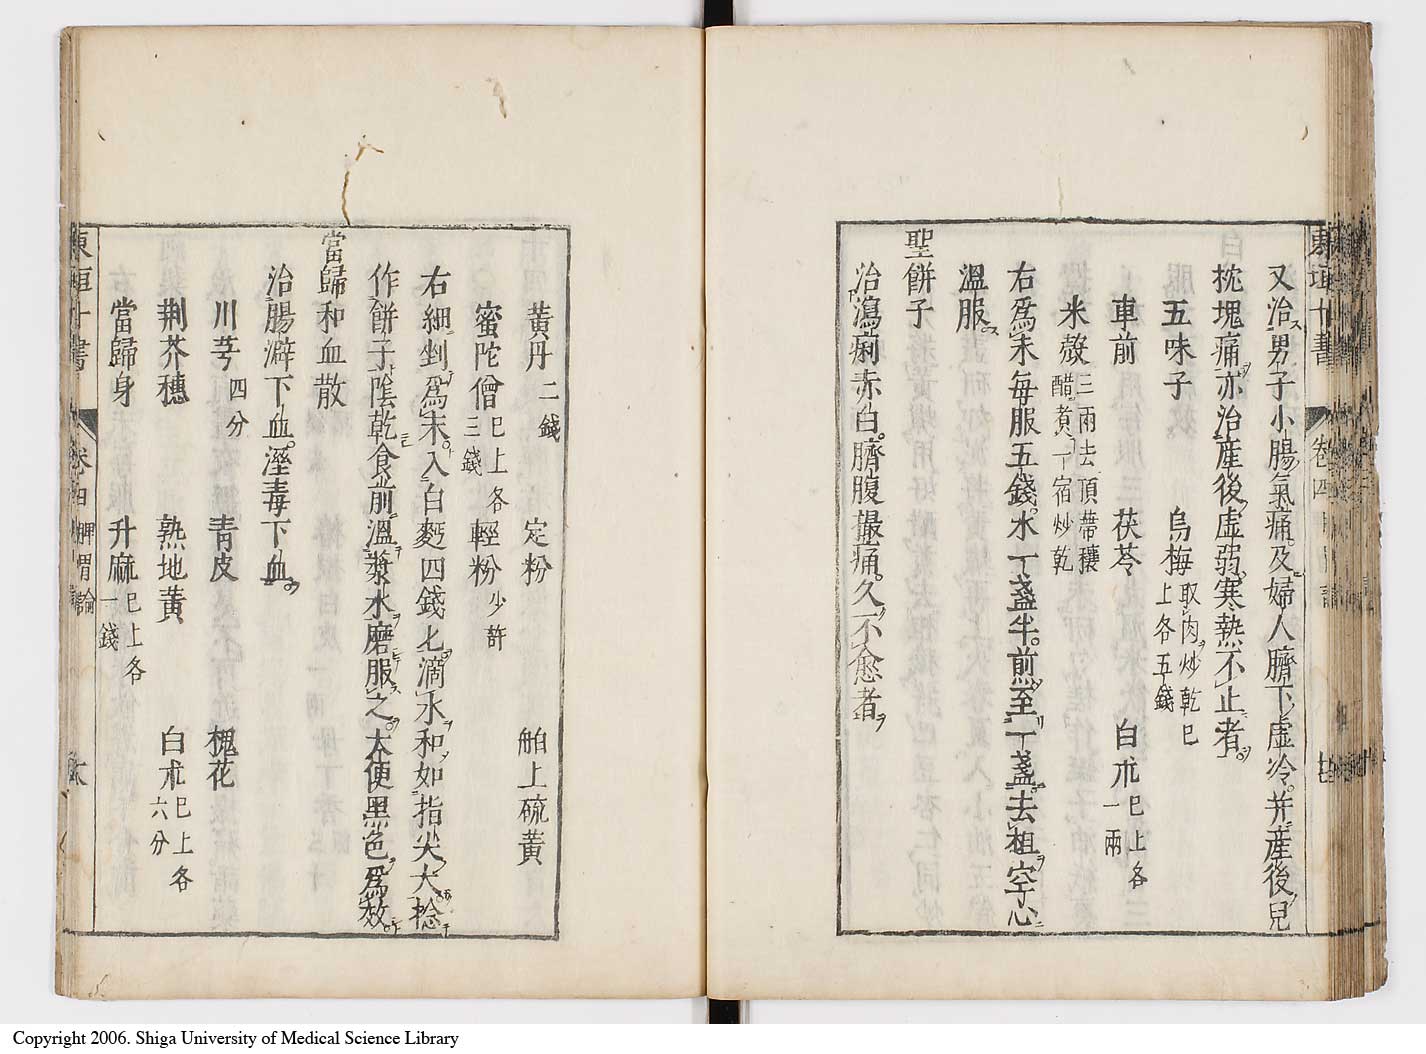 東垣十書
卷四
又治男子小腸氣痛及婦人臍下虛冷并產後兒
枕塊痛亦治產後虛弱寒熱不止者
五味子 烏梅取肉炒乾已上各五錢
車前 茯苓 白朮已上各一兩
米殼三兩去頂蒂穰醋煮一宿炒乾
右爲末每服五錢水一盞半煎至一盞去柤空心
溫服
聖餅子
治瀉痢赤白臍腹撮痛久不愈者
黃丹二錢 定粉 舶上硫黃
蜜陀僧已上各三錢 輕粉少許
右細剉爲末入白麪四錢匕滴水和如指尖大捻
作餅子陰乾食前溫漿水磨服之大便黑色爲效
當歸和血散
治腸澼下血溼毒下血
川芎四分 青皮 槐花
荆芥穗 熟地黃 白朮已上各六分
當歸身 升麻已上各一錢
東垣十書
卷四 脾胃論
Copyright 2006. Shiga University of Medical Science Library